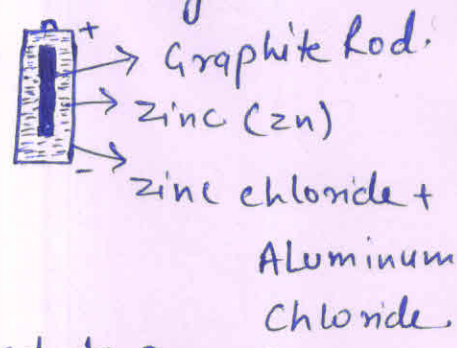 +
Graphite Rod.
zinc (zn)
-
zinc chloride +
ALuminum
Chloride